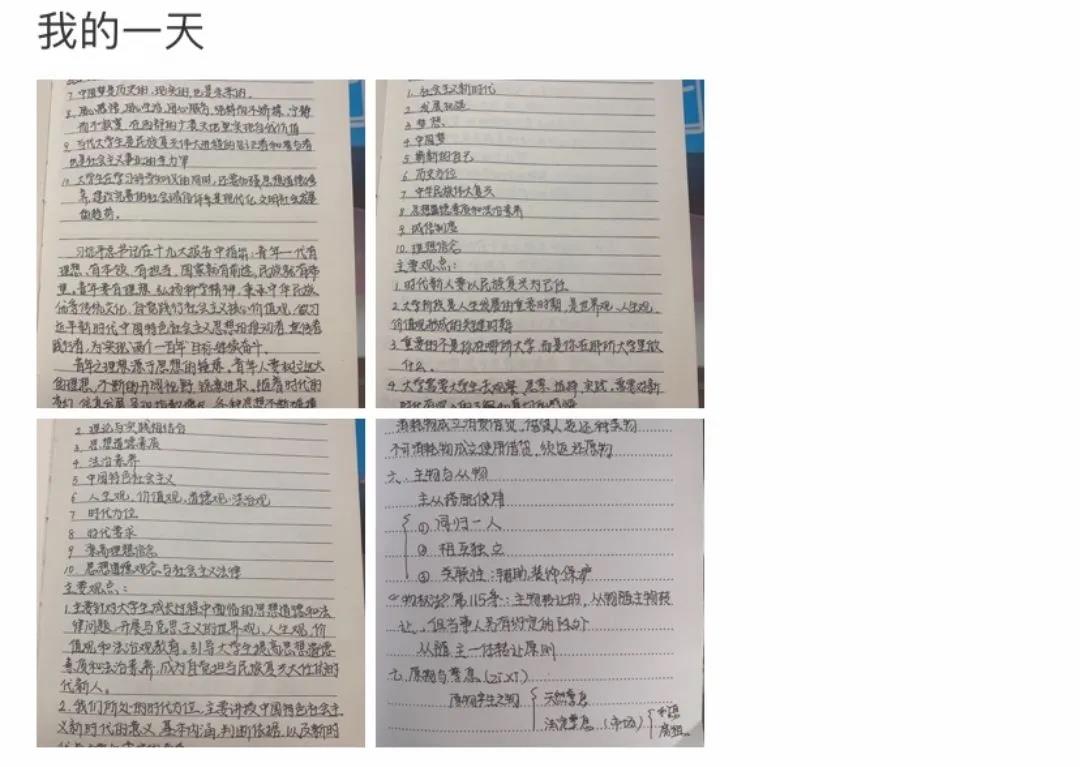 我的一天
7. 中国梦是历史的,现实的,也是未来的。
而不寂寞,在西部的广袤天地里实现自我价值
9. 当代大学生是民族复兴伟大进程的见证者和参与者
也是社会主义事业的生力军
10. 大学生在学习科学知识的同时,还要加强思想道德修
养,建设完善的社会诚信体系是现代化文明社会发展
的趋势。
习近平总书记在十九大报告中指出,青年一代有
理想、有本领、有担当,国家就有前途,民族就有希
望。青年要有理想,弘扬科学精神,秉承中华民族
优秀传统文化,自觉践行社会主义核心价值观,做习
近平新时代中国特色社会主义思想的推动者,宣传者
践行者,为实现"两个一百年"目标继续奋斗。
青年之理想源于思想的锤炼。青年人要树立远大
的理想,不断的开阔视野,锐意进取。随着时代的
1. 社会主义新时代
2. 发展机遇
3. 梦想
4. 中国梦
5. 崭新的自己
6. 历史方位
7. 中华民族伟大复兴
8. 思想道德素质和法治素养
9. 诚信制度
10. 理想信念
主要观点:
1. 时代新人要以民族复兴为己任
2. 大学阶段是人生发展的重要时期,是世界观、人生观、
价值观形成的关键时期
3. 重要的不是你在哪所大学,而是你在那所大学里做
什么。
4. 大学需要大学生去观察、思索、选择、实践,需要对新
2. 理论与实践相结合
3. 思想道德素质
4. 法治素养
5 中国特色社会主义
6 人生观、价值观、道德观、法治观
7 时代方位
8 时代要求
9 崇高理想信念
10. 思想道德观念与社会主义法律
主要观点:
1. 主要针对大学生成长过程中面临的思想道德和法
律问题,开展马克思主义的世界观、人生观、价
值观和法治观教育。引导大学生提高思想道德
素质和法治素养,成为自觉担当民族复兴大任的时
代新人。
2. 我们所处的时代方位,主要讲授中国特色社会主
义新时代的意义,基本内涵,判断依据,以及新时
消耗物成立消费借贷,借贷人返还种类物
不可消耗物成立使用借贷,须返还原物
六、主物与从物
主从搭配使用
① 同归一人
② 相互独立
③ 关联性:辅助、装饰、保护
《物权法》第115条:主物转让的,从物随主物转
让,但当事人另有约定的除外
从随主一体转让原则
七、原物与孳息(zi xi)
原物孳生之物
天然孳息
法定孳息